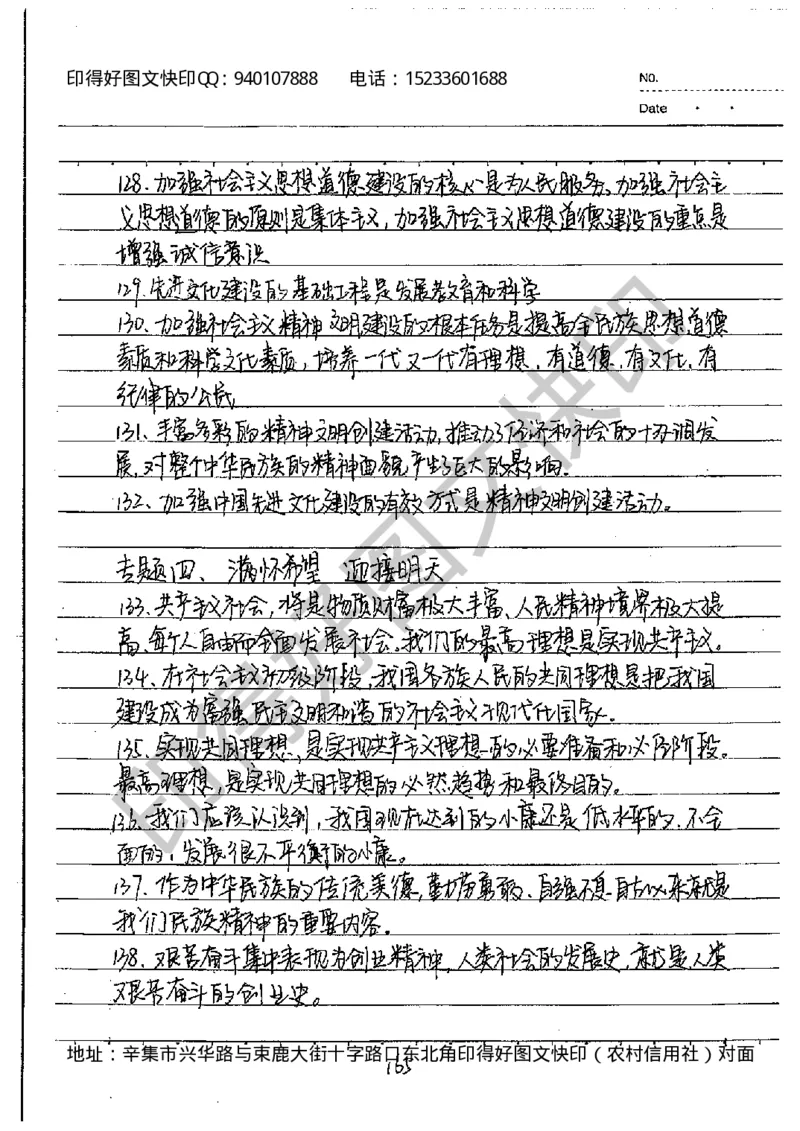 印得好图文快印QQ：940107888 电话：15233601688
No.
Date
128、加强社会主义思想道德建设的核心是为人民服务。加强社会主
义思想道德的原则是集体主义，加强社会主义思想道德建设的重点是
增强诚信意识
129、先进文化建设的基础工程是发展教育和科学
130、加强社会主义精神文明建设的根本任务是提高全民族思想道德
素质和科学文化素质，培养一代又一代有理想，有道德，有文化，有
纪律的公民
131、丰富多彩的精神文明创建活动，推动了经济和社会的协调发
展，对整个中华民族的精神面貌产生巨大的影响。
132、加强中国先进文化建设的有效方式是精神文明创建活动。
专题四、满怀希望 迎接明天
133、共产主义社会，将是物质财富极大丰富、人民精神境界极大提
高、每个人自由而全面发展社会。我们的最高理想是实现共产主义。
134、在社会主义初级阶段，我国各族人民的共同理想是把我国
建设成为富强民主文明和谐的社会主义现代化国家。
135、实现共同理想，是实现共产主义理想的必要准备和必经阶段。
最高理想，是实现共同理想的必然趋势和最终目的。
136、我们应该认识到，我国现在达到的小康还是低水平的，不全
面的，发展很不平衡的小康。
137、作为中华民族的传统美德，勤劳勇敢、自强不息自古以来就是
我们民族精神的重要内容。
138、艰苦奋斗集中表现为创业精神，人类社会的发展史，就是人类
艰苦奋斗的创业史。
地址：辛集市兴华路与束鹿大街十字路口东北角印得好图文快印（农村信用社）对面
165
印得好图文快印